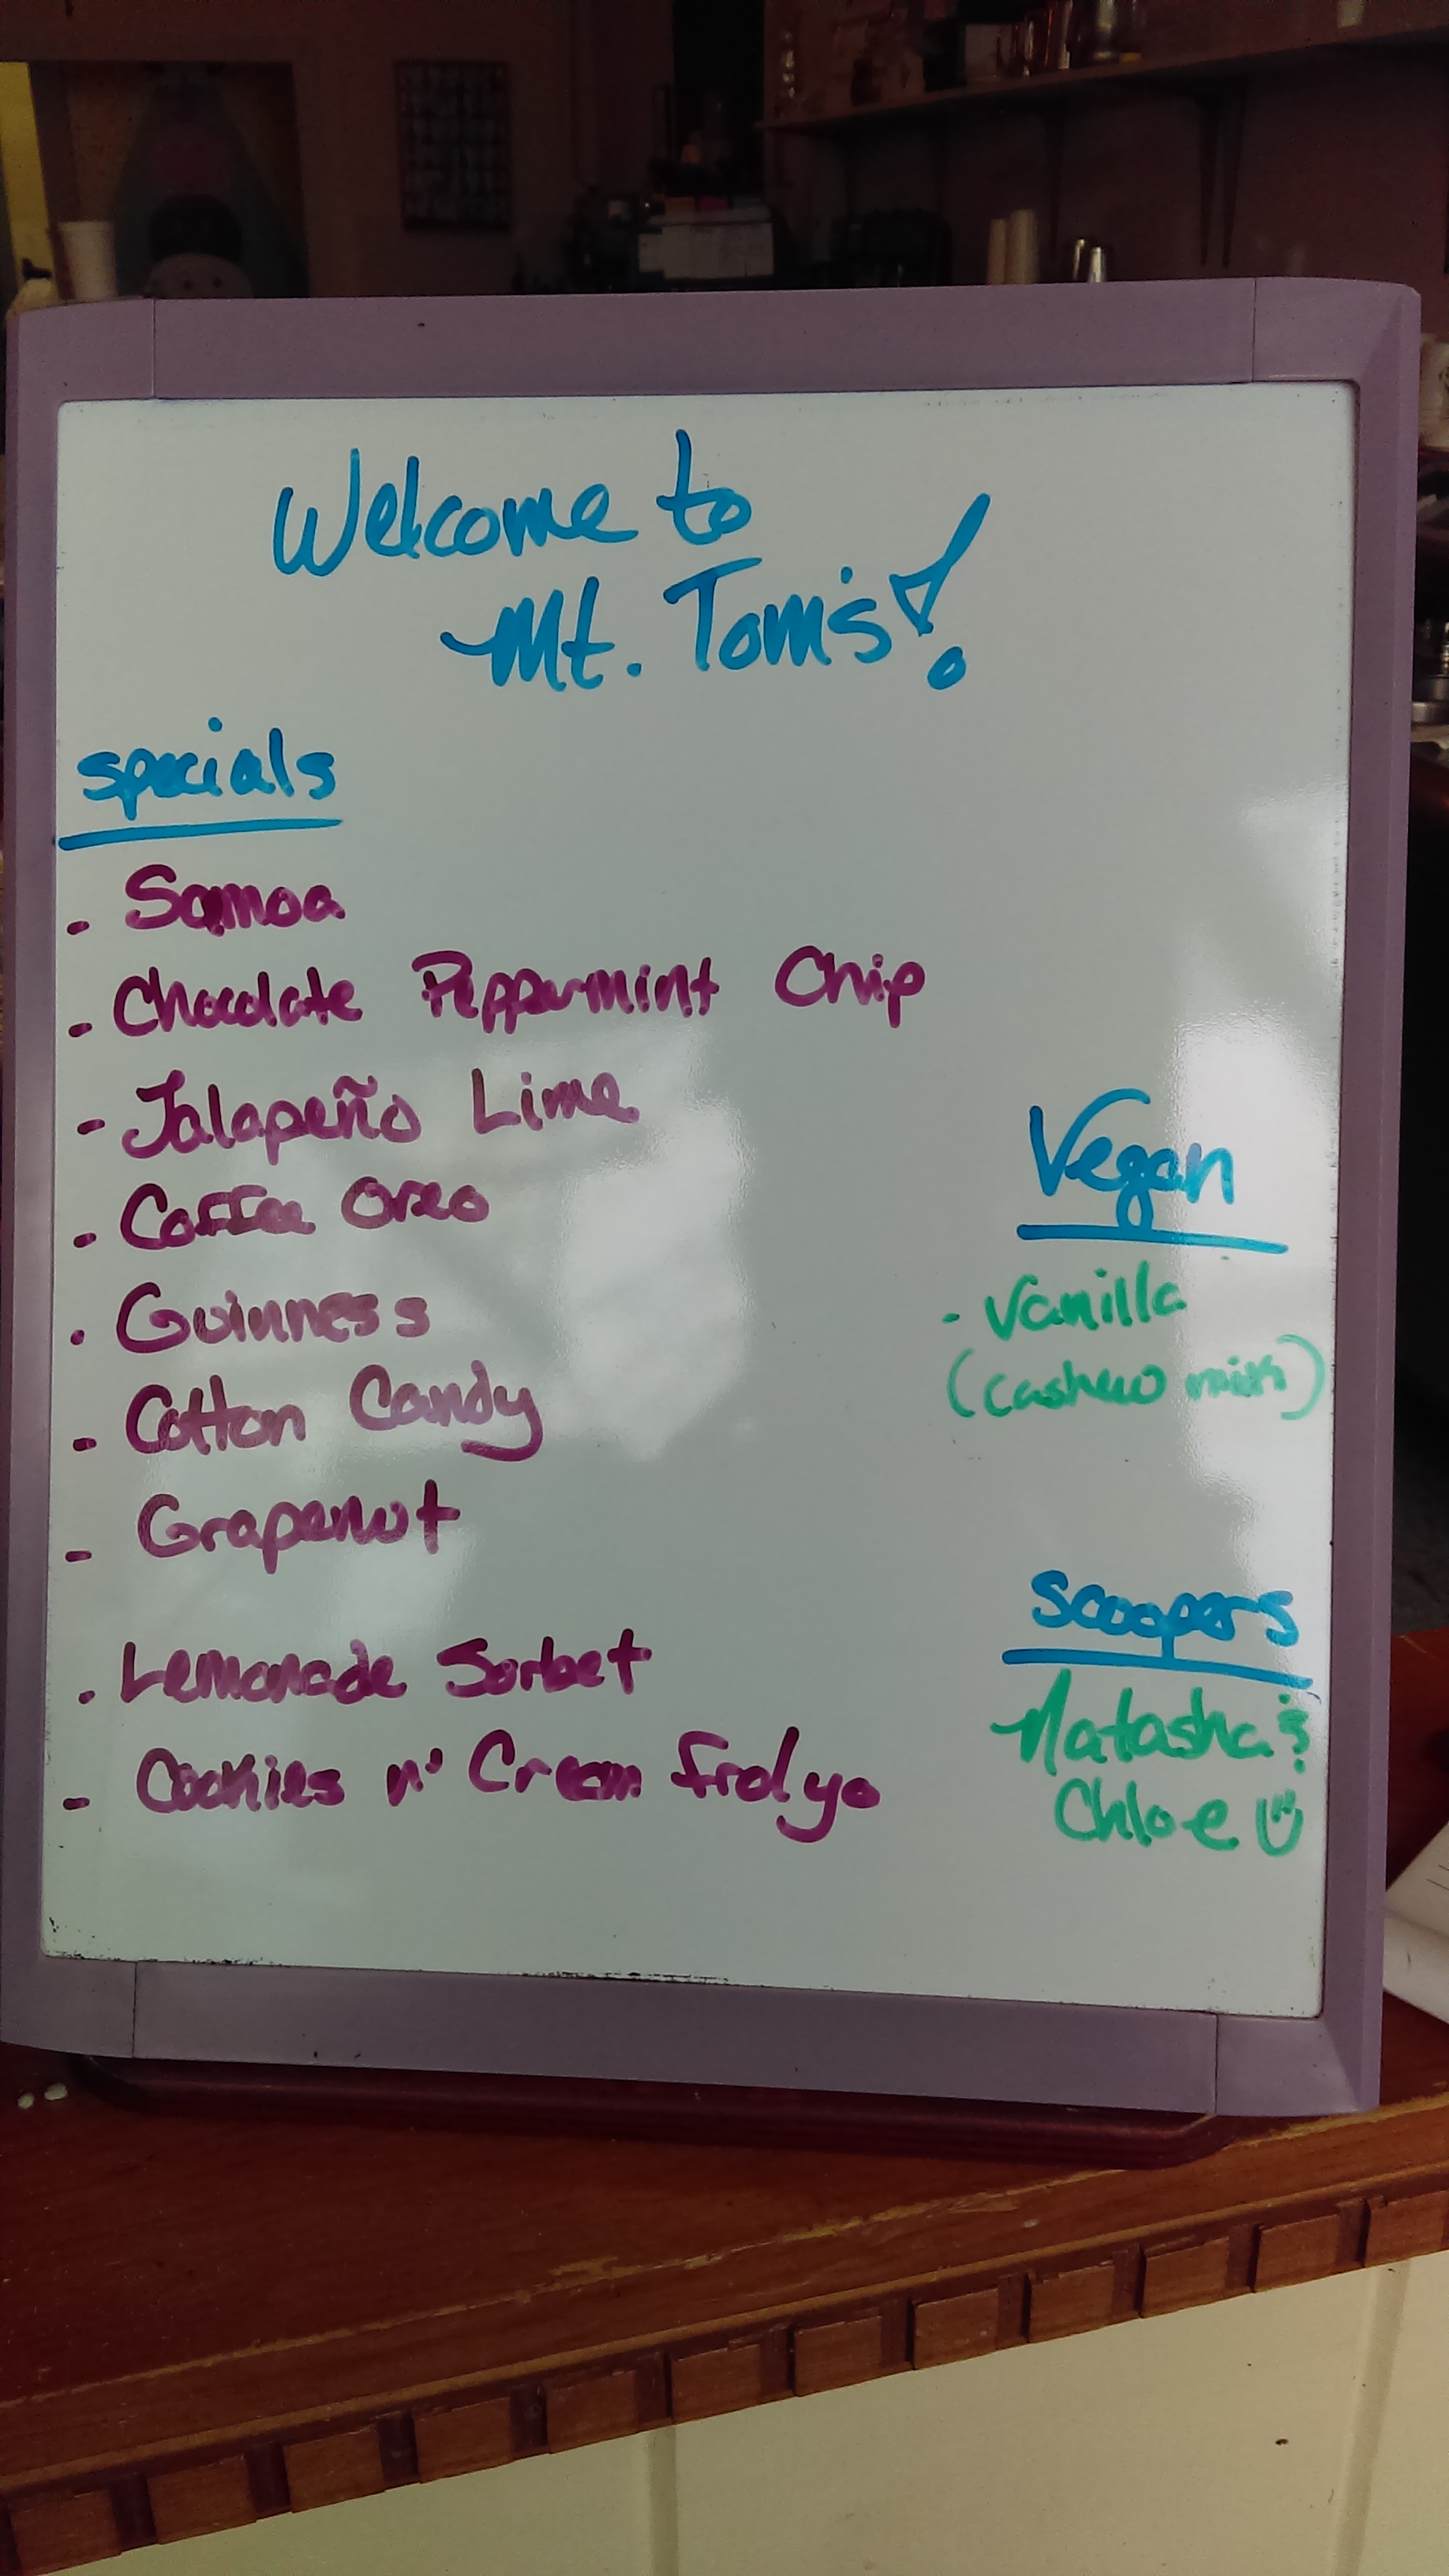 Welcome to
Mt. Tom's!
specials
- Samoa
- Chocolate Peppermint Chip
- Jalapeño Lime
- Coffee Oreo
- Guinness
- Cotton Candy
- Grapenut
- Lemonade Sorbet
- Cookies n' Cream froyo
Vegan
- Vanilla
(cashew milk)
Scoopers
Natasha &
Chloe